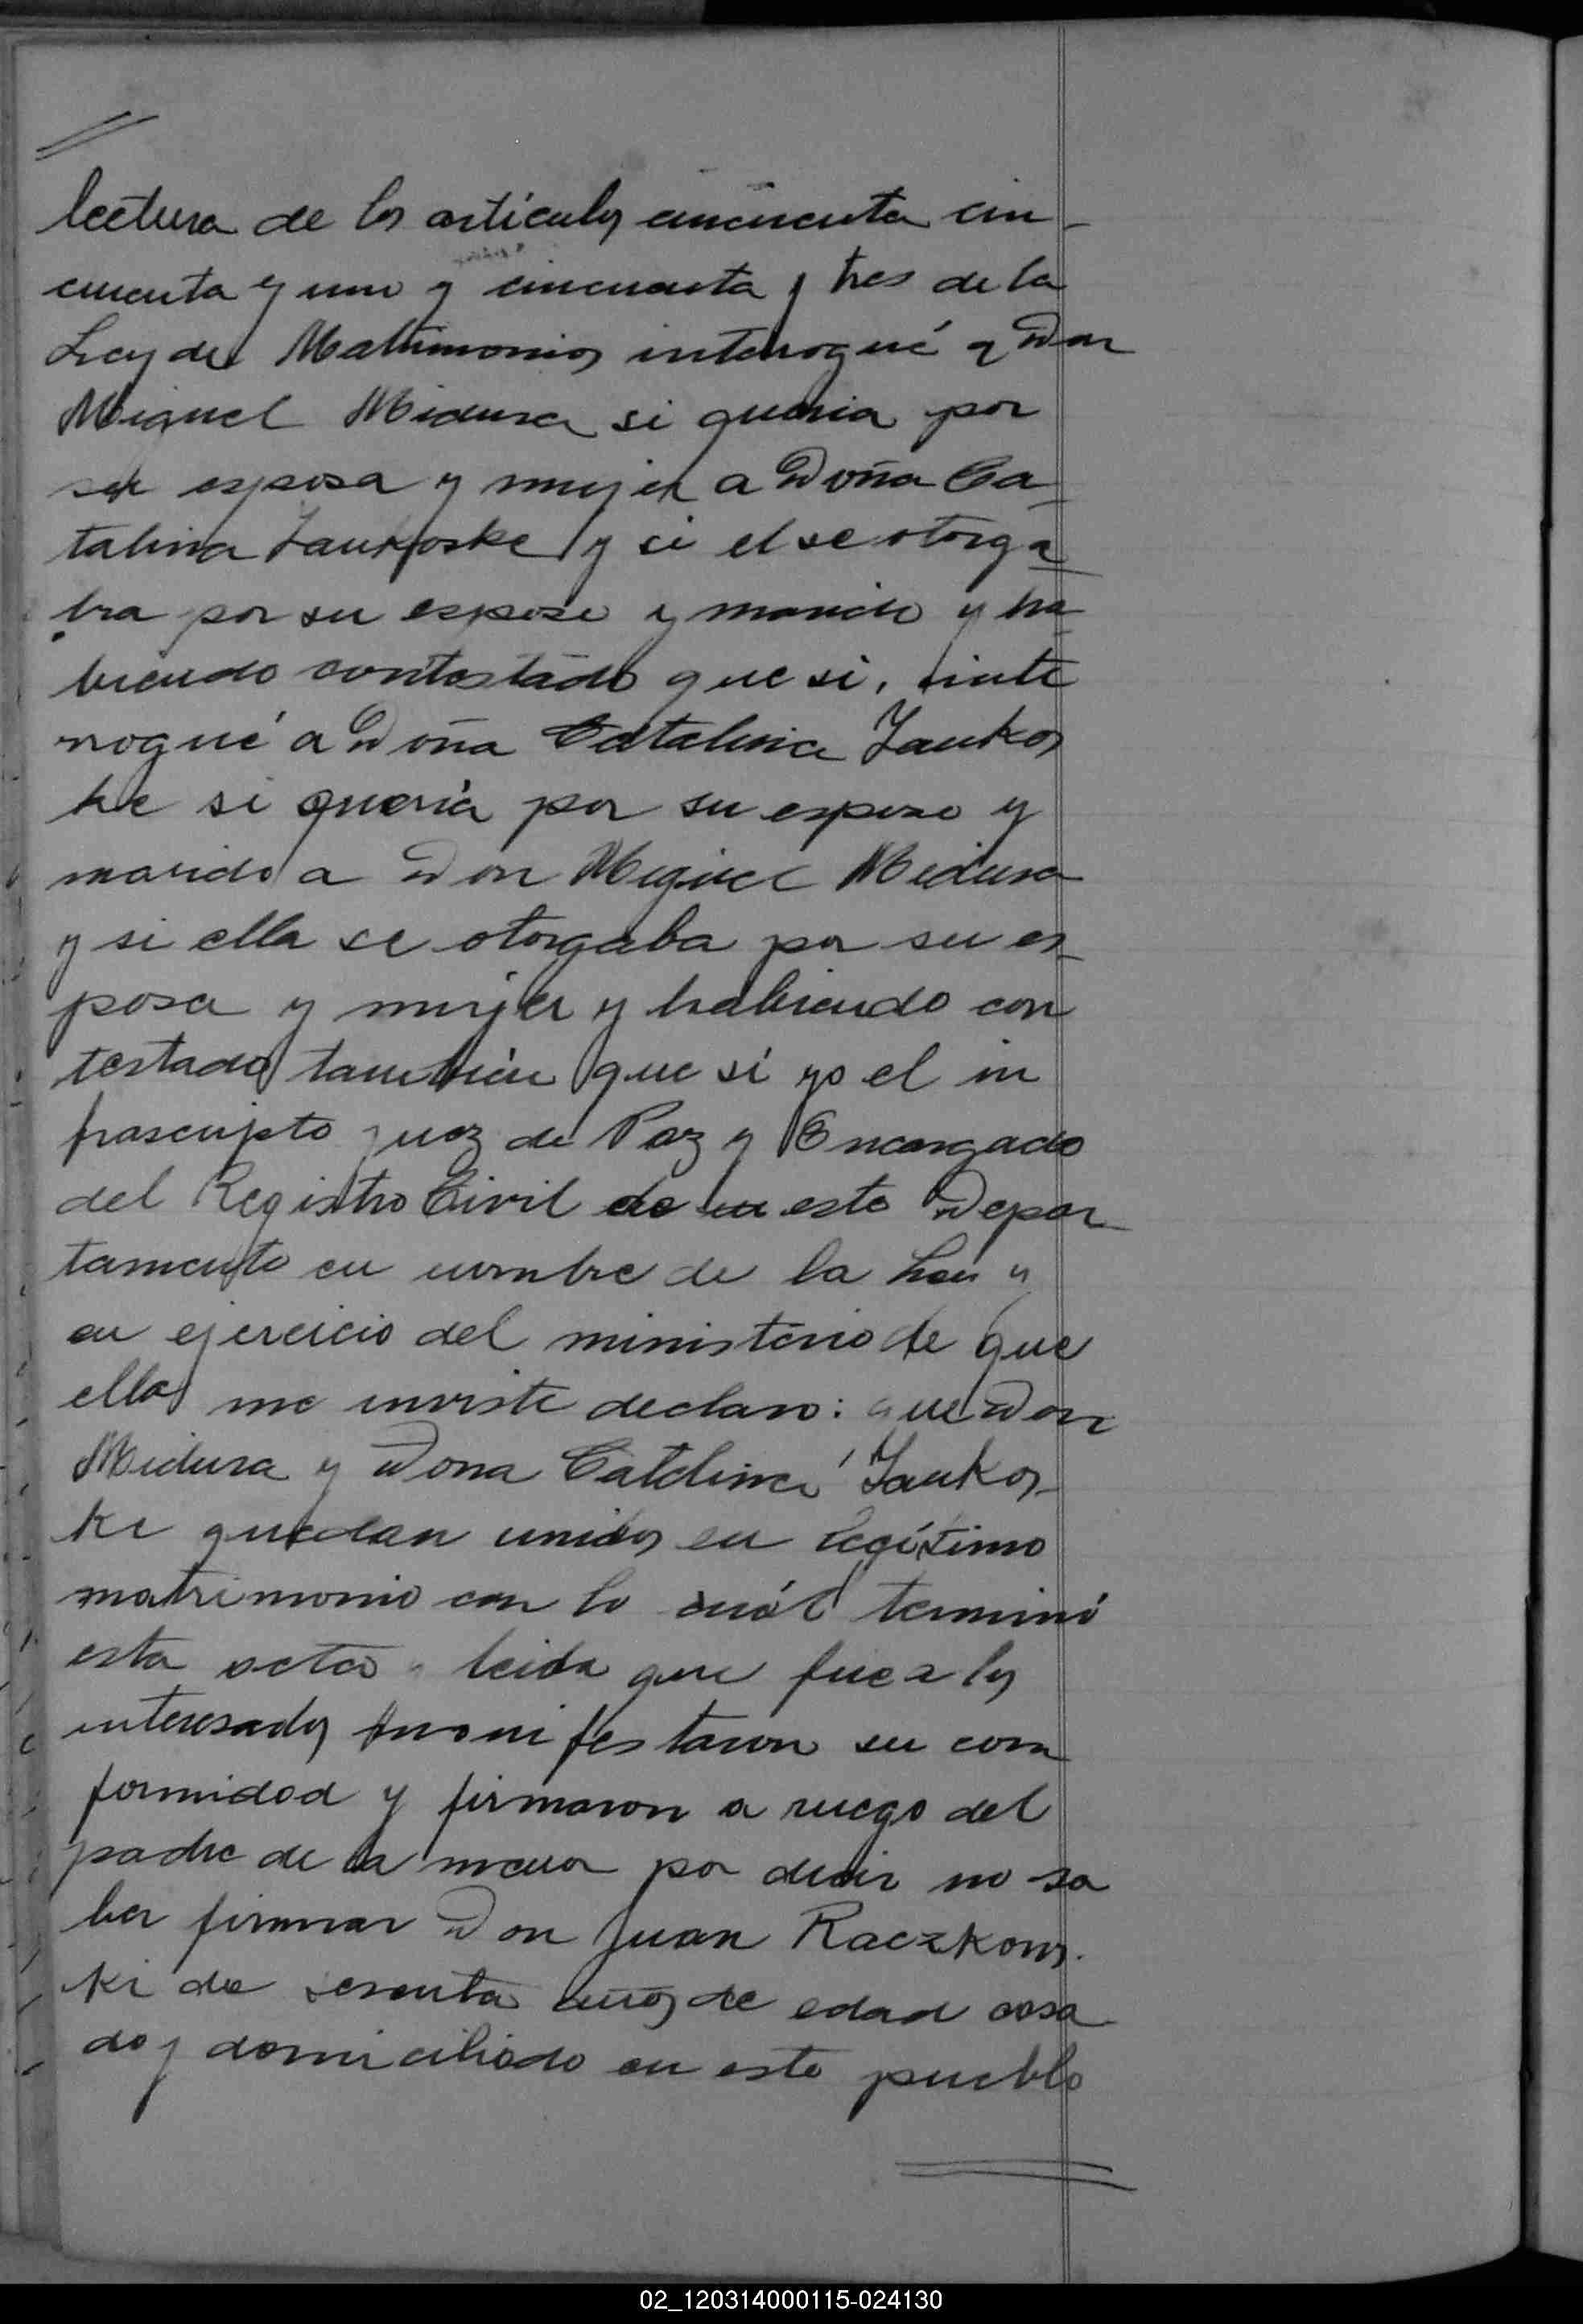 lectura de los artículos cincuenta cin-
cuenta y uno y cincuenta y tres de la
Ley de Matrimonios interrogué a Don
Miguel Midura si queria por
su esposa y mujer a Doña Ca-
talina Jankoske y si el se otorga-
ba por su esposo y marido y ha-
biendo contestado que si, inte
rrogué a Doña Catalina Jankos
ke si quería por su esposo y
marido a Don Miguel Midura
y si ella se otorgaba por su es-
posa y mujer y habiendo con
testado también que sí yo el in
frascripto Juez de Paz y Encargado
del Registro Civil de en este Depar-
tamento en nombre de la Ley y
en ejercicio del ministerio de que
ella me inviste declaro: que Don
Midura y Dona Catalina Jankos-
ki quedan unidos en legítimo
matrimonio con lo cuál terminó
esta acta leida que fue a los
interesados manifestaron su con
formidad y firmaron a ruego del
padre de la menor por decir no sa
ber firmar Don Juan Raczkows-
ki de sesenta años de edad casa
do y domiciliado en este pueblo
02_120314000115-024130